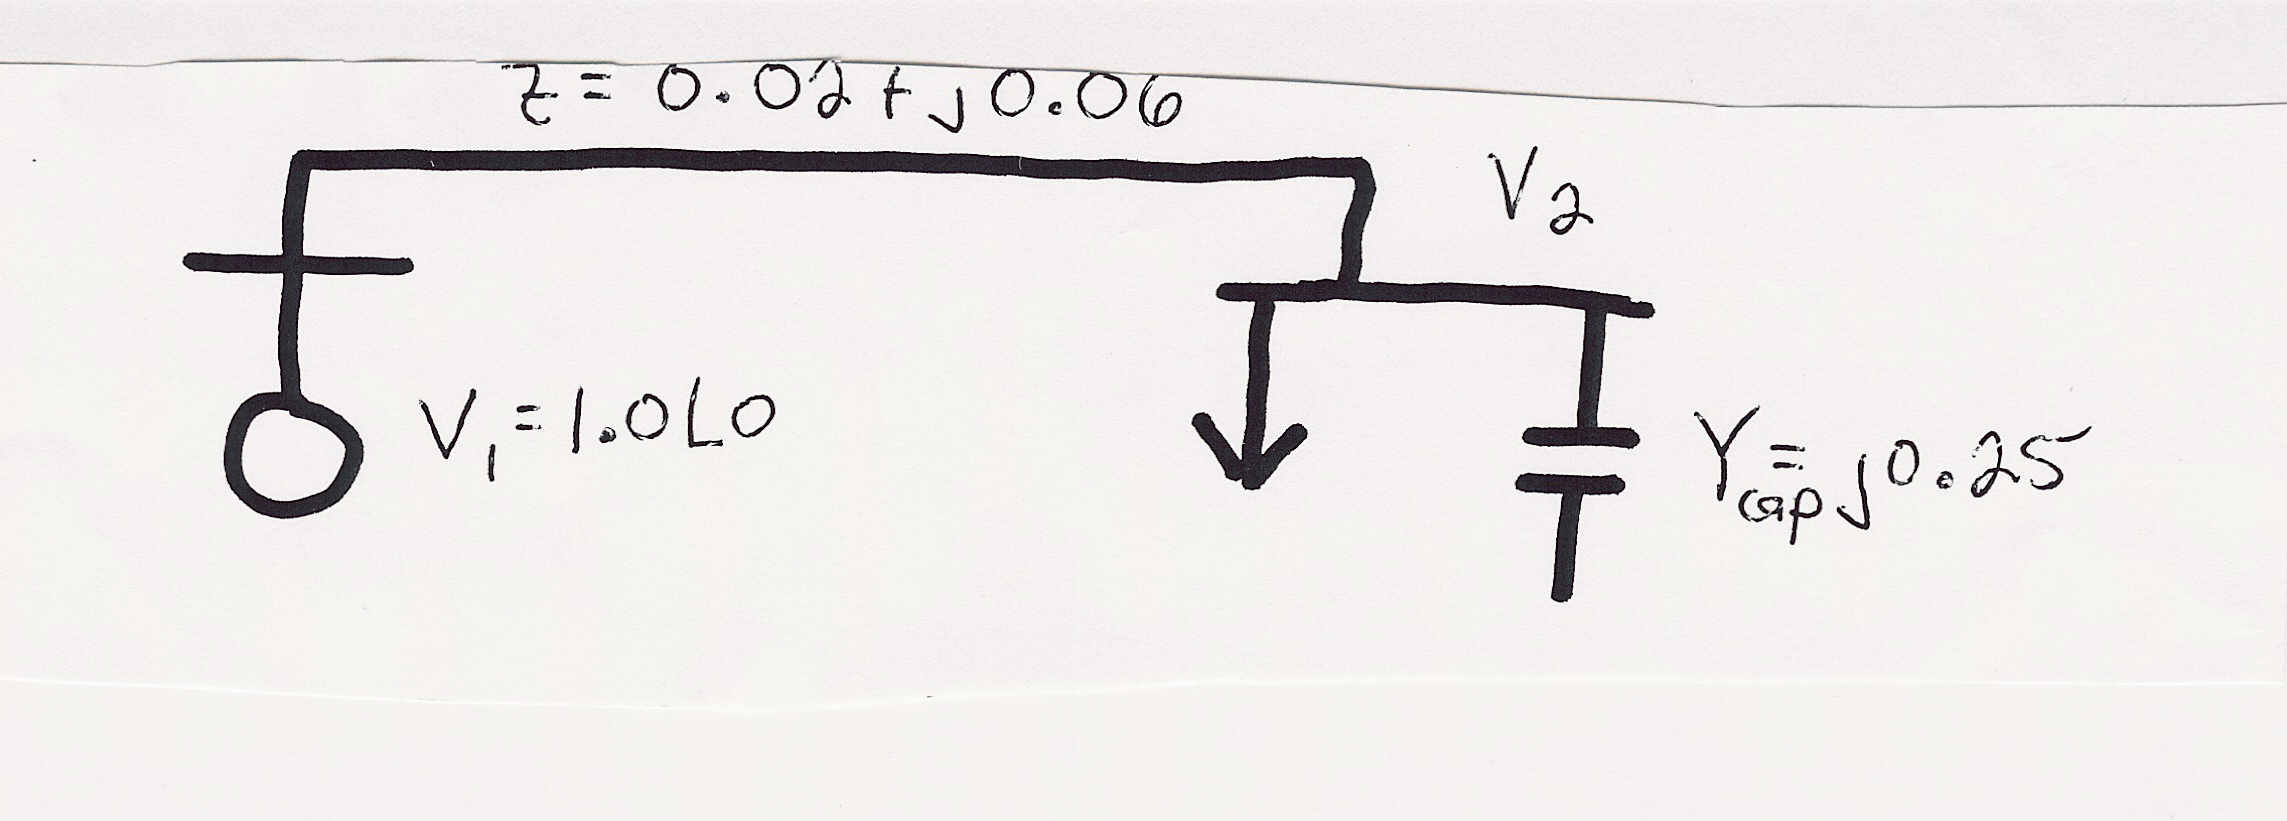 Z = 0.02 + j0.06
V2
V1 = 1.0∠0
Ycap = j0.25